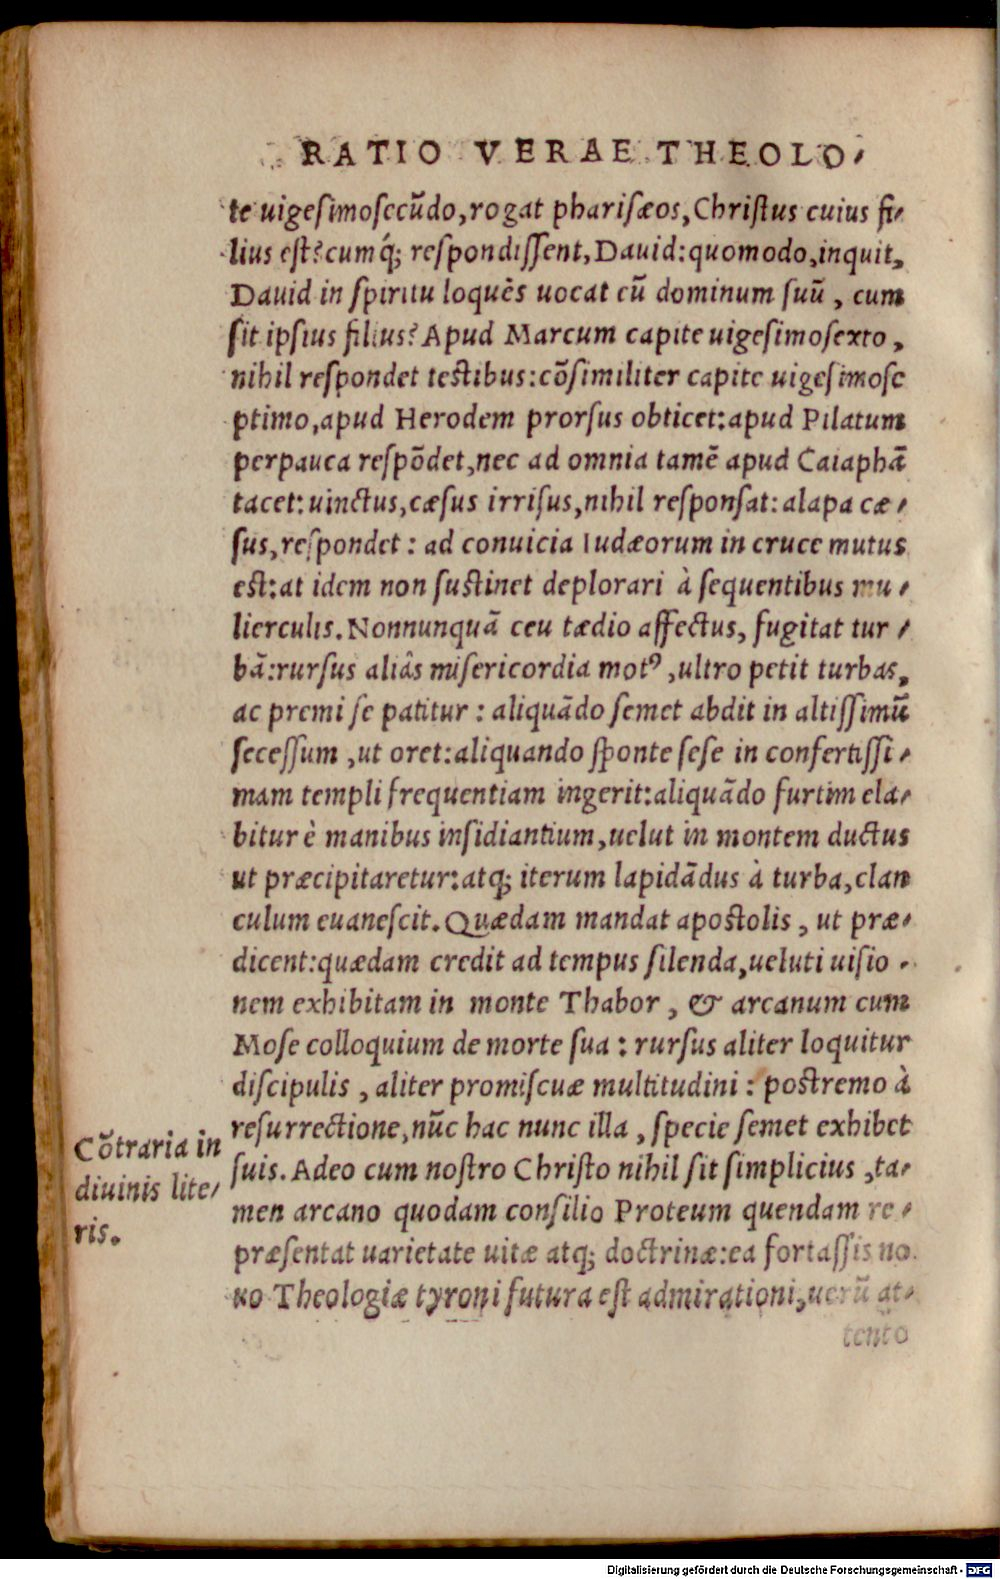 RATIO VERAE THEOLO-
te uigesimosecũdo, rogat pharisæos, Christus cuius fi-
lius est? cumq́; respondissent, Dauid: quomodo, inquit,
Dauid in spiritu loquẽs uocat eũ dominum suũ, cum
sit ipsius filius? Apud Marcum capite uigesimosexto,
nihil respondet testibus: cõsimiliter capite uigesimose
ptimo, apud Herodem prorsus obticet: apud Pilatum
perpauca respõdet, nec ad omnia tamẽ apud Caiaphã
tacet: uinctus, cæsus irrisus, nihil responsat: alapa cæ-
sus, respondet: ad conuicia Iudæorum in cruce mutus
est: at idem non sustinet deplorari à sequentibus mu-
lierculis. Nonnunquã ceu tædio affectus, fugitat tur-
bã: rursus aliâs misericordia motꝰ, ultro petit turbas,
ac premi se patitur: aliquãdo semet abdit in altissimũ
secessum, ut oret: aliquando sponte sese in confertissi-
mam templi frequentiam ingerit: aliquãdo furtim ela-
bitur è manibus insidiantium, uelut in montem ductus
ut præcipitaretur: atq; iterum lapidãdus à turba, clan
culum euanescit. Quædam mandat apostolis, ut præ-
dicent: quædam credit ad tempus silenda, ueluti uisio-
nem exhibitam in monte Thabor, & arcanum cum
Mose colloquium de morte sua: rursus aliter loquitur
discipulis, aliter promiscuæ multitudini: postremo à
resurrectione, nũc hac nunc illa, specie semet exhibet
suis. Adeo cum nostro Christo nihil sit simplicius, ta-
men arcano quodam consilio Proteum quendam re-
præsentat uarietate uitæ atq; doctrinæ: ea fortassis no
uo Theologiæ tyroni futura est admirationi, uerũ at-
tento
Cõtraria in
diuinis lite-
ris.
Digitalisierung gefördert durch die Deutsche Forschungsgemeinschaft - DFG